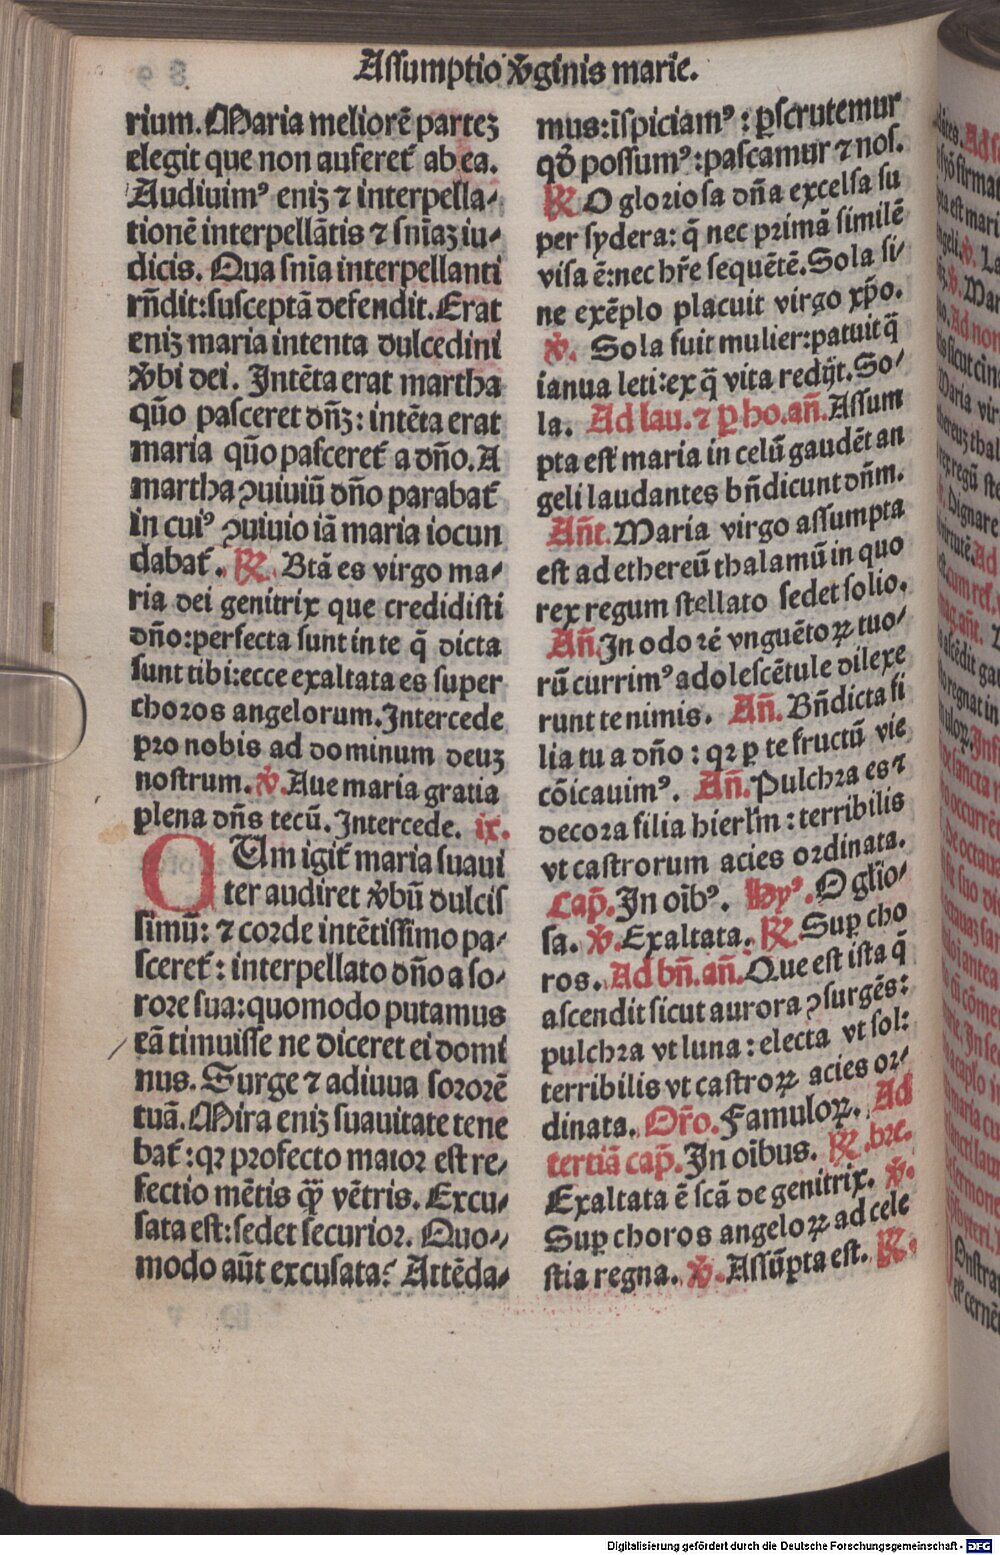 Assumptio v̄ginis marie.
rium. Maria meliorē partez
elegit que non auferet᷑ ab ea.
Audiuimꝰ eniz ⁊ interpella⸗
tionē interpellātis ⁊ snīaz iu⸗
dicis. Qua snīa interpellanti
rn̄dit: susceptā defendit. Erat
eniz maria intenta dulcedini
v̄bi dei. Intēta erat martha
quō pasceret dn̄z: intēta erat
maria quō pasceret᷑ a dn̄o. A
martha ꝯuiuiū dn̄o parabat᷑
in cuiꝰ ꝯuiuio iā maria iocun
dabat᷑. ℟. Btā es virgo ma⸗
ria dei genitrix que credidisti
dn̄o: perfecta sunt in te q̄ dicta
sunt tibi: ecce exaltata es super
choros angelorum. Intercede
pro nobis ad dominum deuz
nostrum. v̄. Aue maria gratia
plena dn̄s tecū. Intercede. ix.
CUm igit᷑ maria suaui
ter audiret v̄bū dulcis
simū: ⁊ corde intētissimo pa⸗
sceret᷑: interpellato dn̄o a so⸗
rore sua: quomodo putamus
eā timuisse ne diceret ei domi
nus. Surge ⁊ adiuua sororē
tuā. Mira eniz suauitate tene
bat᷑: qꝛ profecto maior est re⸗
fectio mētis qꝙ̄ vētris. Excu⸗
sata est: sedet securior. Quo⸗
modo aūt excusata? Attēda⸗
mus: īspiciamꝰ: ꝑscrutemur
qd̄ possumꝰ: pascamur ⁊ nos.
℟ O gloriosa dn̄a excelsa su
per sydera: q̄ nec primā similē
visa ē: nec hr̄e sequētē. Sola si⸗
ne exēplo placuit virgo xp̄o.
v̄. Sola fuit mulier: patuit q̄
ianua leti: ex q̄ vita redijt. So⸗
la. Ad lau. ⁊ ꝑ ho. an̄. Assum
pta est maria in celū gaudēt an
geli laudantes bn̄dicunt dn̄m.
An̄t. Maria virgo assumpta
est ad ethereū thalamū in quo
rex regum stellato sedet solio.
An̄. In odorē vnguētoꝝ tuo⸗
rū currimꝰ adolescētule dilexe
runt te nimis. An̄. Bn̄dicta fi
lia tu a dn̄o: qꝛ ꝑ te fructū vie
cōicauimꝰ. An̄. Pulchra es ⁊
decora filia hierl̄m: terribilis
vt castrorum acies ordinata.
Cap̄. In oībꝰ. Hyꝰ. O gl̄io⸗
sa. v̄. Exaltata. ℟ Suꝑ cho
ros. Ad bn̄. an̄. Que est ista q̄
ascendit sicut aurora ꝯsurgēs:
pulchra vt luna: electa vt sol:
terribilis vt castroꝝ acies or⸗
dinata. Or̄o. Famuloꝝ. Ad
tertiā cap̄. In oībus. ℟. bre.
Exaltata ē scā de genitrix. v̄.
Suꝑ choros angeloꝝ ad cele
stia regna. v̄. Assūpta est. ℟.